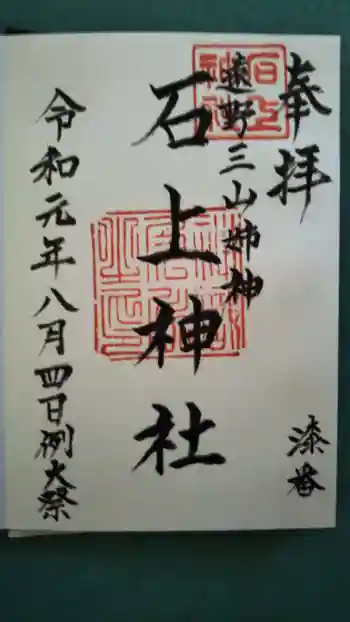 奉拝
漆番
遠野三山姉神
石上神社
令和元年八月四日例大祭